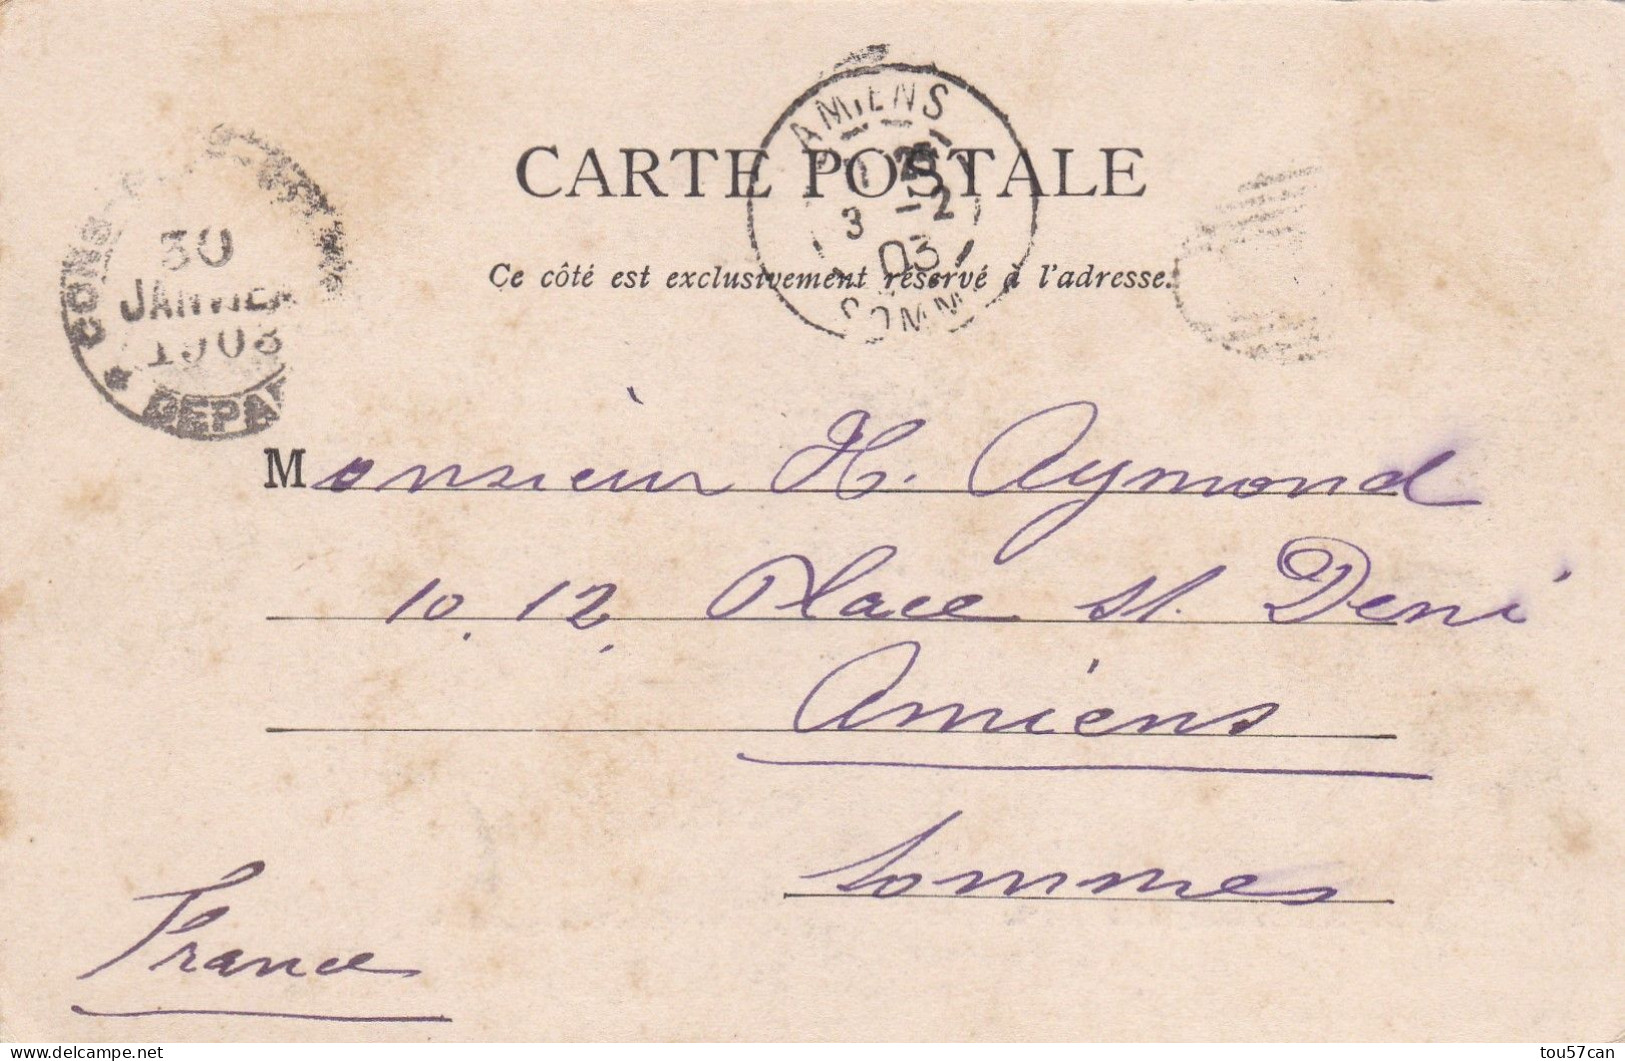 CARTE POSTALE
AMIENS
3 -2
03
SOMM
Ce côté est exclusivement réservé à l'adresse.
30
JANVIER
1903
DEPA
Monsieur H. Aymond
10, 12, Place St. Deni
Amiens
Sommes
France
tou57can